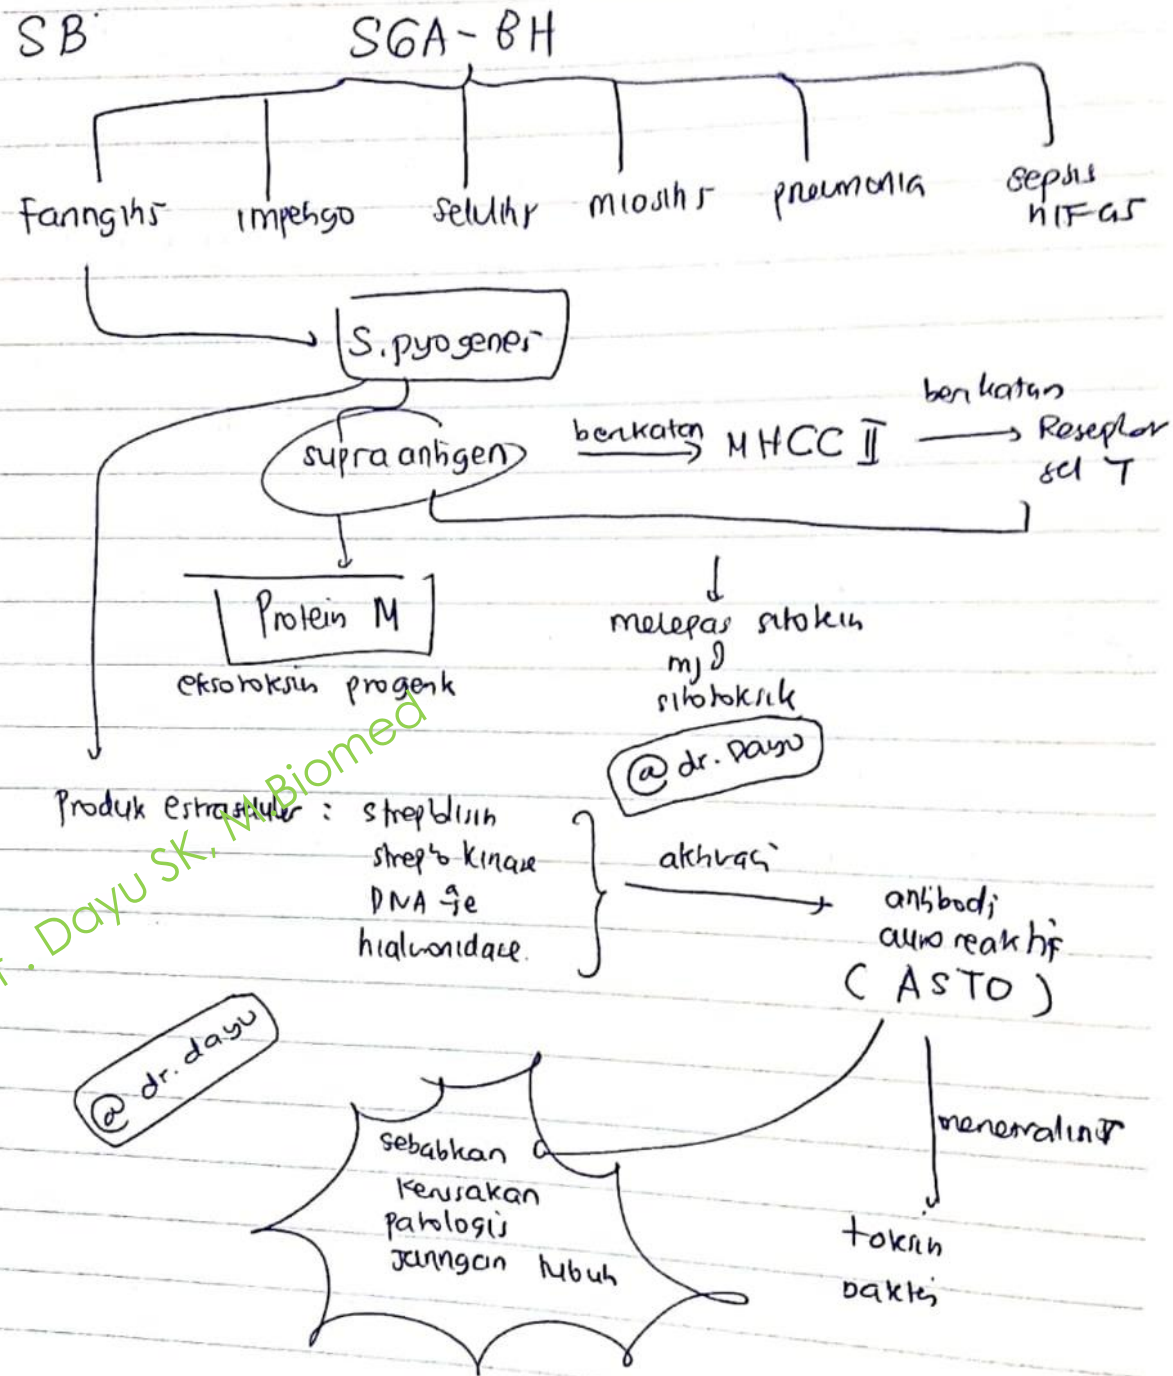 SB
SGA-BH
Faringitis impetigo selulitis miositis pneumonia sepsis
nifas
S.pyogenes
supraantigen berikatan MHCC II berikatan Reseptor
sel T
Protein M
eksotoksin progenik
melepas sitokin
mjd
sitotoksik
@ dr. Dayu
Dayu SK, M.Biomed
Produk estraseluler : streptolisin
strepto kinase
DNA ase
hialuronidase.
aktivasi
antibodi
auto reaktif
(ASTO)
@ dr. dayu
sebabkan
kerusakan
patologis
Jaringan tubuh
menetralisir
toksin
bakteri